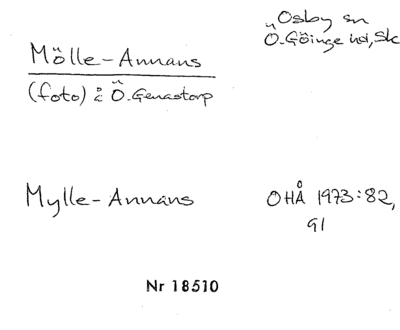 Osby sn
Ö. Göinge hd, Sk
Mölle-Annans
(foto) i Ö. Genastorp
Mylle-Annans
OHÅ 1973:82,
91
Nr 18510